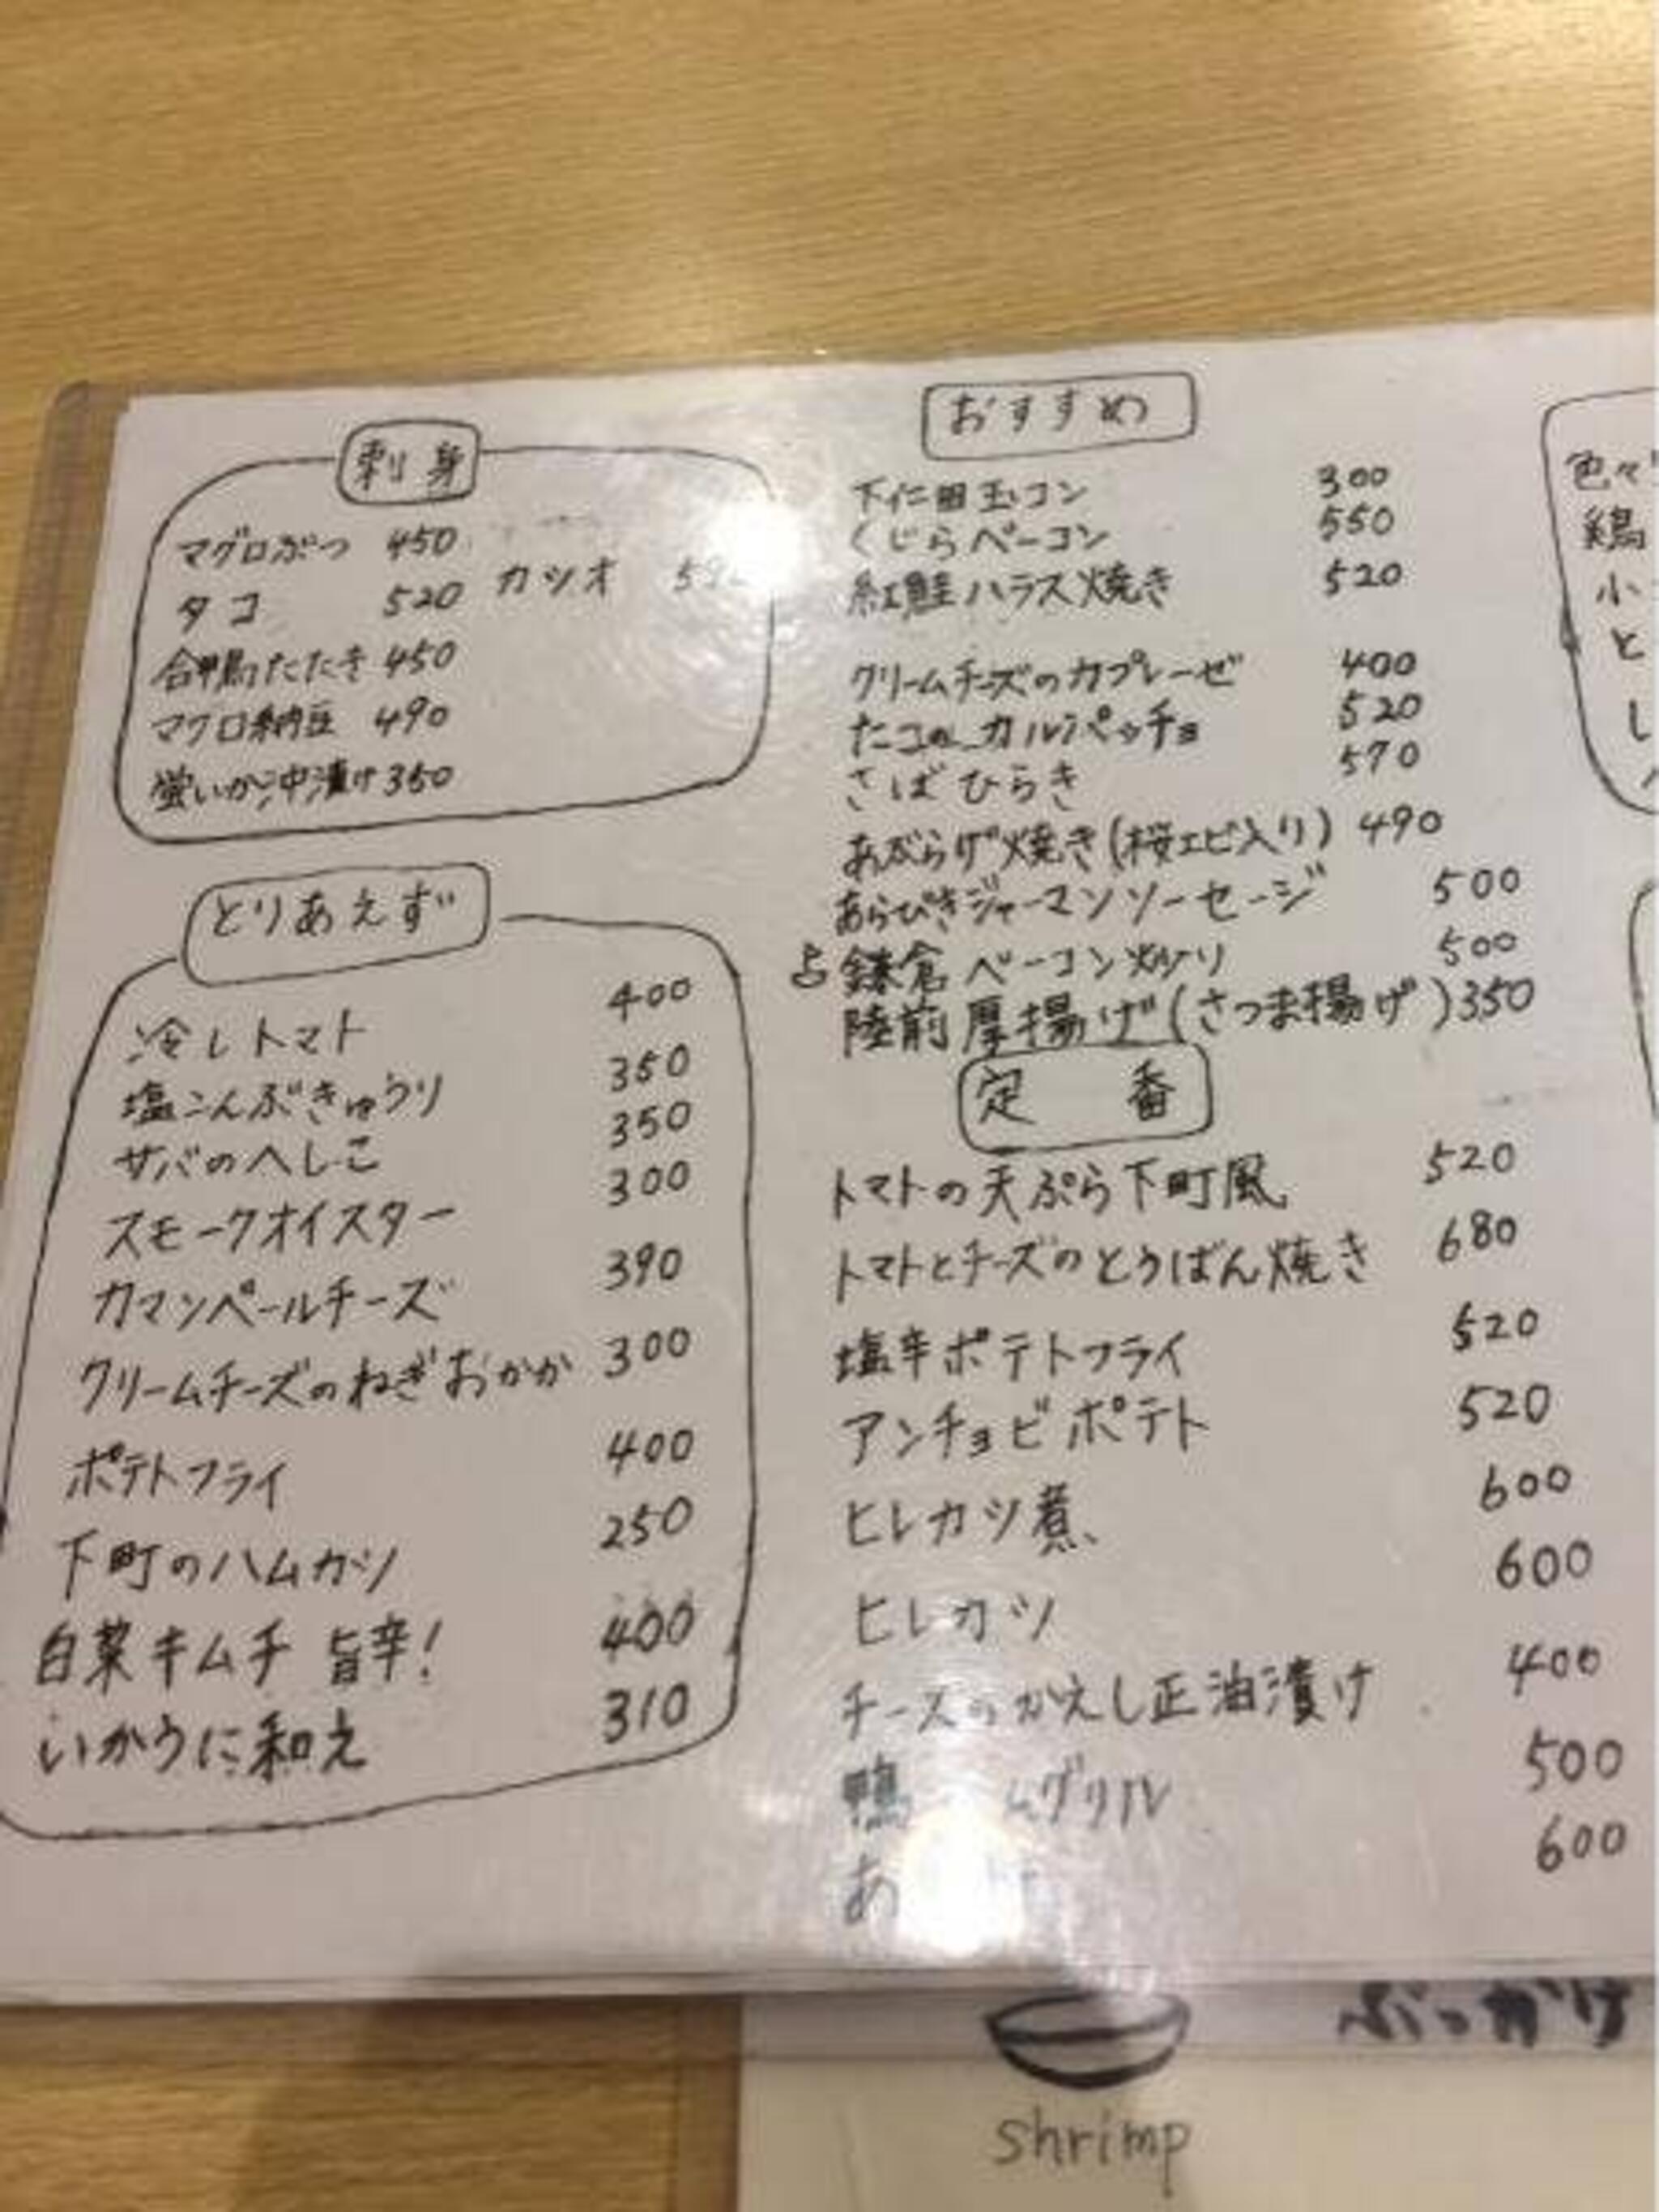 刺身
マグロぶつ 450
カツオ
タコ 520
合鴨たたき 450
マグロ納豆 490
蛍いか沖漬け 350
とりあえず
冷しトマト 400
塩こんぶきゅうり 350
サバのへしこ 350
スモークオイスター 300
カマンベールチーズ 390
クリームチーズのねぎおかか 300
ポテトフライ 400
下町のハムカツ 250
白菜キムチ 旨辛! 400
いかうに和え 310
おすすめ
下仁田玉コン 300
くじらベーコン 550
紅鮭ハラス焼き 520
クリームチーズのカプレーゼ 400
たコのカルパッチョ 520
さばひらき 570
あぶらげ焼き(桜エビ入り) 490
あらびきジャーマンソーセージ 500
鎌倉ベーコン炙り 500
陸前厚揚げ(さつま揚げ) 350
定番
トマトの天ぷら下町風 520
トマトとチーズのとうばん焼き 680
塩辛ポテトフライ 520
アンチョビポテト 520
ヒレカツ煮 600
ヒレカツ 600
チーズのかえし正油漬け 400
鴨 ムグリル 500
あ 600
色々
鶏
小
と
し
ぶっかけ
shrimp